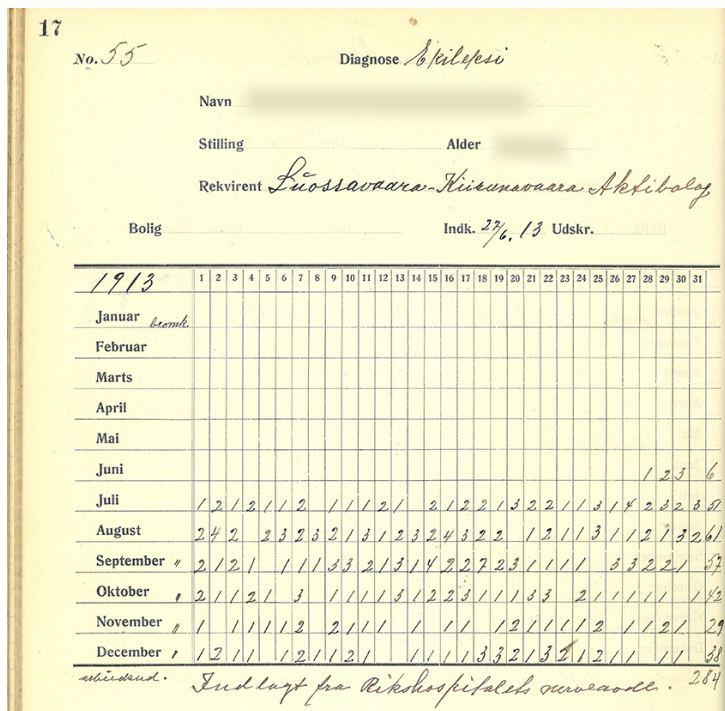 17
No. 55 Diagnose Epilepsi
Navn
Stilling Alder
Rekvirent Luossavaara-Kiirunavaara Aktibolag
Bolig Indk. 27/6. 13 Udskr.
1913 1 2 3 4 5 6 7 8 9 10 11 12 13 14 15 16 17 18 19 20 21 22 23 24 25 26 27 28 29 30 31
Januar
Februar
Marts
April
Mai
Juni 1 2 3 6
Juli 1 2 1 2 1 1 2 1 1 1 2 1 2 1 2 2 1 3 2 2 1 1 3 1 4 2 3 2 3 51
August 2 4 2 2 3 2 3 2 1 3 1 2 3 2 4 3 2 2 1 2 1 1 3 1 1 2 1 3 2 61
September " 2 1 2 1 1 1 1 3 3 2 1 3 1 4 2 2 7 2 3 1 1 1 1 3 3 2 2 1 57
Oktober " 2 1 1 2 1 3 1 1 1 1 3 1 2 2 3 1 1 1 3 3 2 1 1 1 1 1 1 42
November " 1 1 1 1 1 2 2 1 1 1 1 1 1 1 2 1 1 1 1 2 1 1 2 1 29
December " 1 2 1 1 1 2 1 1 2 1 1 1 1 1 3 3 2 1 3 2 1 2 1 2 1 1 1 1 38
Indlagt fra Rikshospitalets 284